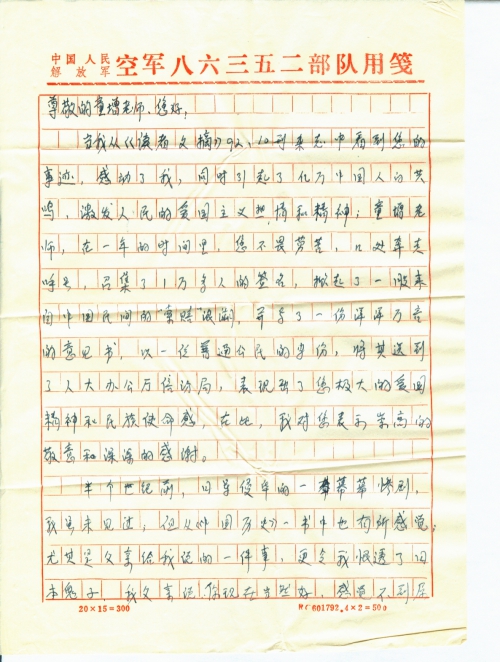 中国人民
解放军
空军八六三五二部队用笺
尊敬的童增老师、您好,
当我从《读者文摘》92.10刊杂志中看到您的
事迹,感动了我,同时引起了亿万中国人的共
鸣,激发人民的爱国主义热情和精神;童增老
师,在一年的时间里,您不畏劳苦,四处奔走
呼号,召集了1万多人的签名,掀起了一股来
自中国民间的"索赔浪潮",并拿了一份洋洋万言
的意见书,以一位普通公民的身份,将其送到
了人大办公厅信访局,表现出了您极大的爱国
精神和民族使命感,在此,我对您表示崇高的
敬意和深深的感谢。
半个世纪前,日寇侵华的一幕幕惨剧,
我虽未见过,但从《中国历史》一书中也有所感觉;
尤其是父亲给我说的一件事,更令我恨透了日
本鬼子,我父亲说,你现在生些好,感觉不到
20×15=300
601792.4×2=500